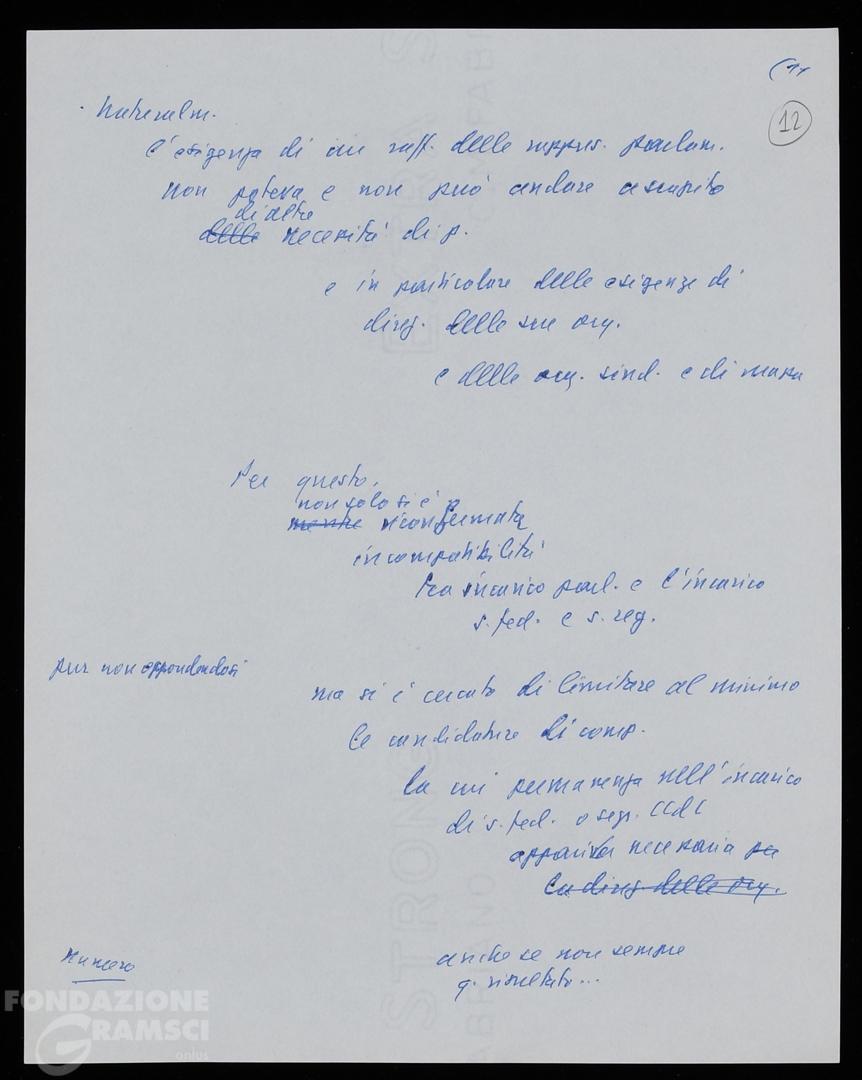 (11
12
. Naturalm.
l'esigenza di un raff. delle rappres. parlam.
non poteva e non può andare a scapito
di altre
delle necessità di p.
e in particolare delle esigenze di
direz. delle sue org.
e delle org. sind. e di massa
Per questo,
non solo si è
mentre riconfermata
incompatibilità
tra incarico parl. e l'incarico
s. fed. e s. reg.
pur non
ma si è cercato di limitare al minimo
le candidature di comp.
la cui permanenza nell'incarico
di s. fed. o segr. CCdL
necessaria per
la direz. delle org.
Numero
anche se non sempre
q. risultato...
STRONG
FABRIANO
EXTRA S
FONDAZIONE
GRAMSCI
onlus